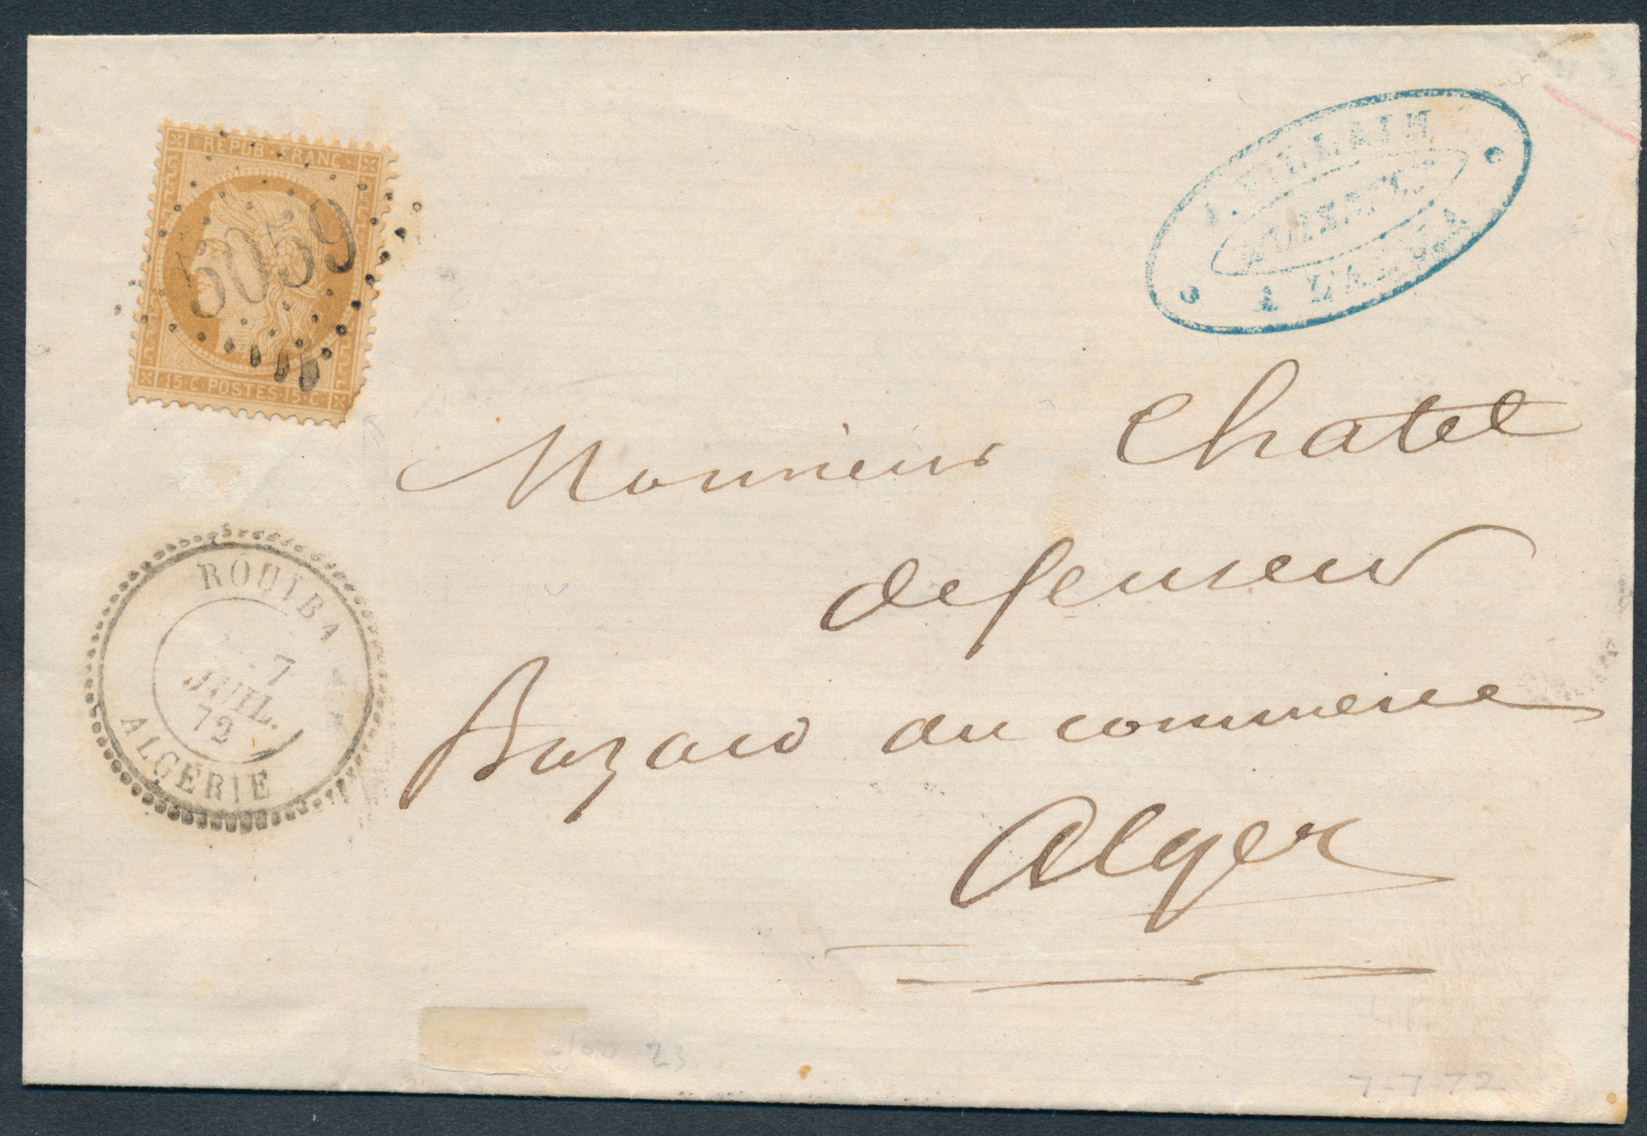 REPUB · FRANC ·
5059
15 · C · POSTES · 15 · C ·
HUISSIER
A L'ARBA
Monsieur Chatel
défenseur
ROUIBA
7
JUIL.
72
ALGÉRIE
Bazard du commerce
Alger
23
7-7-72